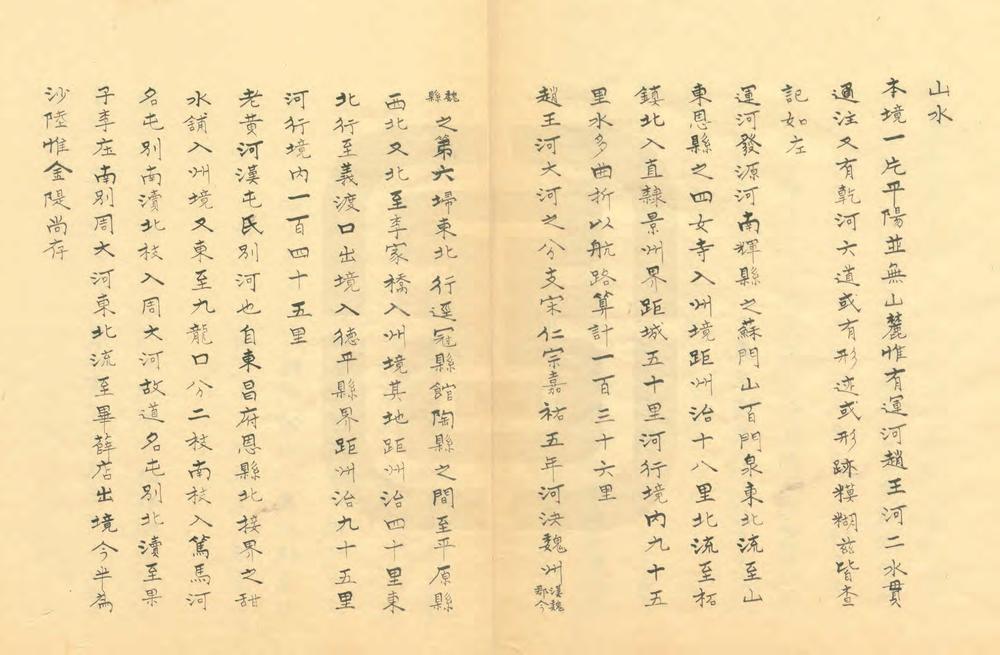 山水
本境一片平陽並無山麓惟有運河趙王河二水貫
通注又有乾河六道或有形迹或形跡糢糊玆皆查
記如左
運河發源河南輝縣之蘇門山百門泉東北流至山
東恩縣之四女寺入州境距州治十八里北流至柘
鎮北入直隸景州界距城五十里河行境內九十五
里水多曲折以航路算計一百三十六里
趙王河大河之分支宋仁宗嘉祐五年河決魏州漢魏郡今
魏縣之第六埽東北行逕冠縣館陶縣之間至平原縣
西北又北至李家橋入州境其地距州治四十里東
北行至義渡口出境入德平縣界距州治九十五里
河行境內一百四十五里
老黄河漢屯氏別河也自東昌府恩縣北接界之甜
水舖入州境又東至九龍口分二枝南枝入篤馬河
名屯別南瀆北枝入周大河故道名屯別北瀆至果
子李庄南別周大河東北流至畢薛店出境今半為
沙陸惟金隄尚存